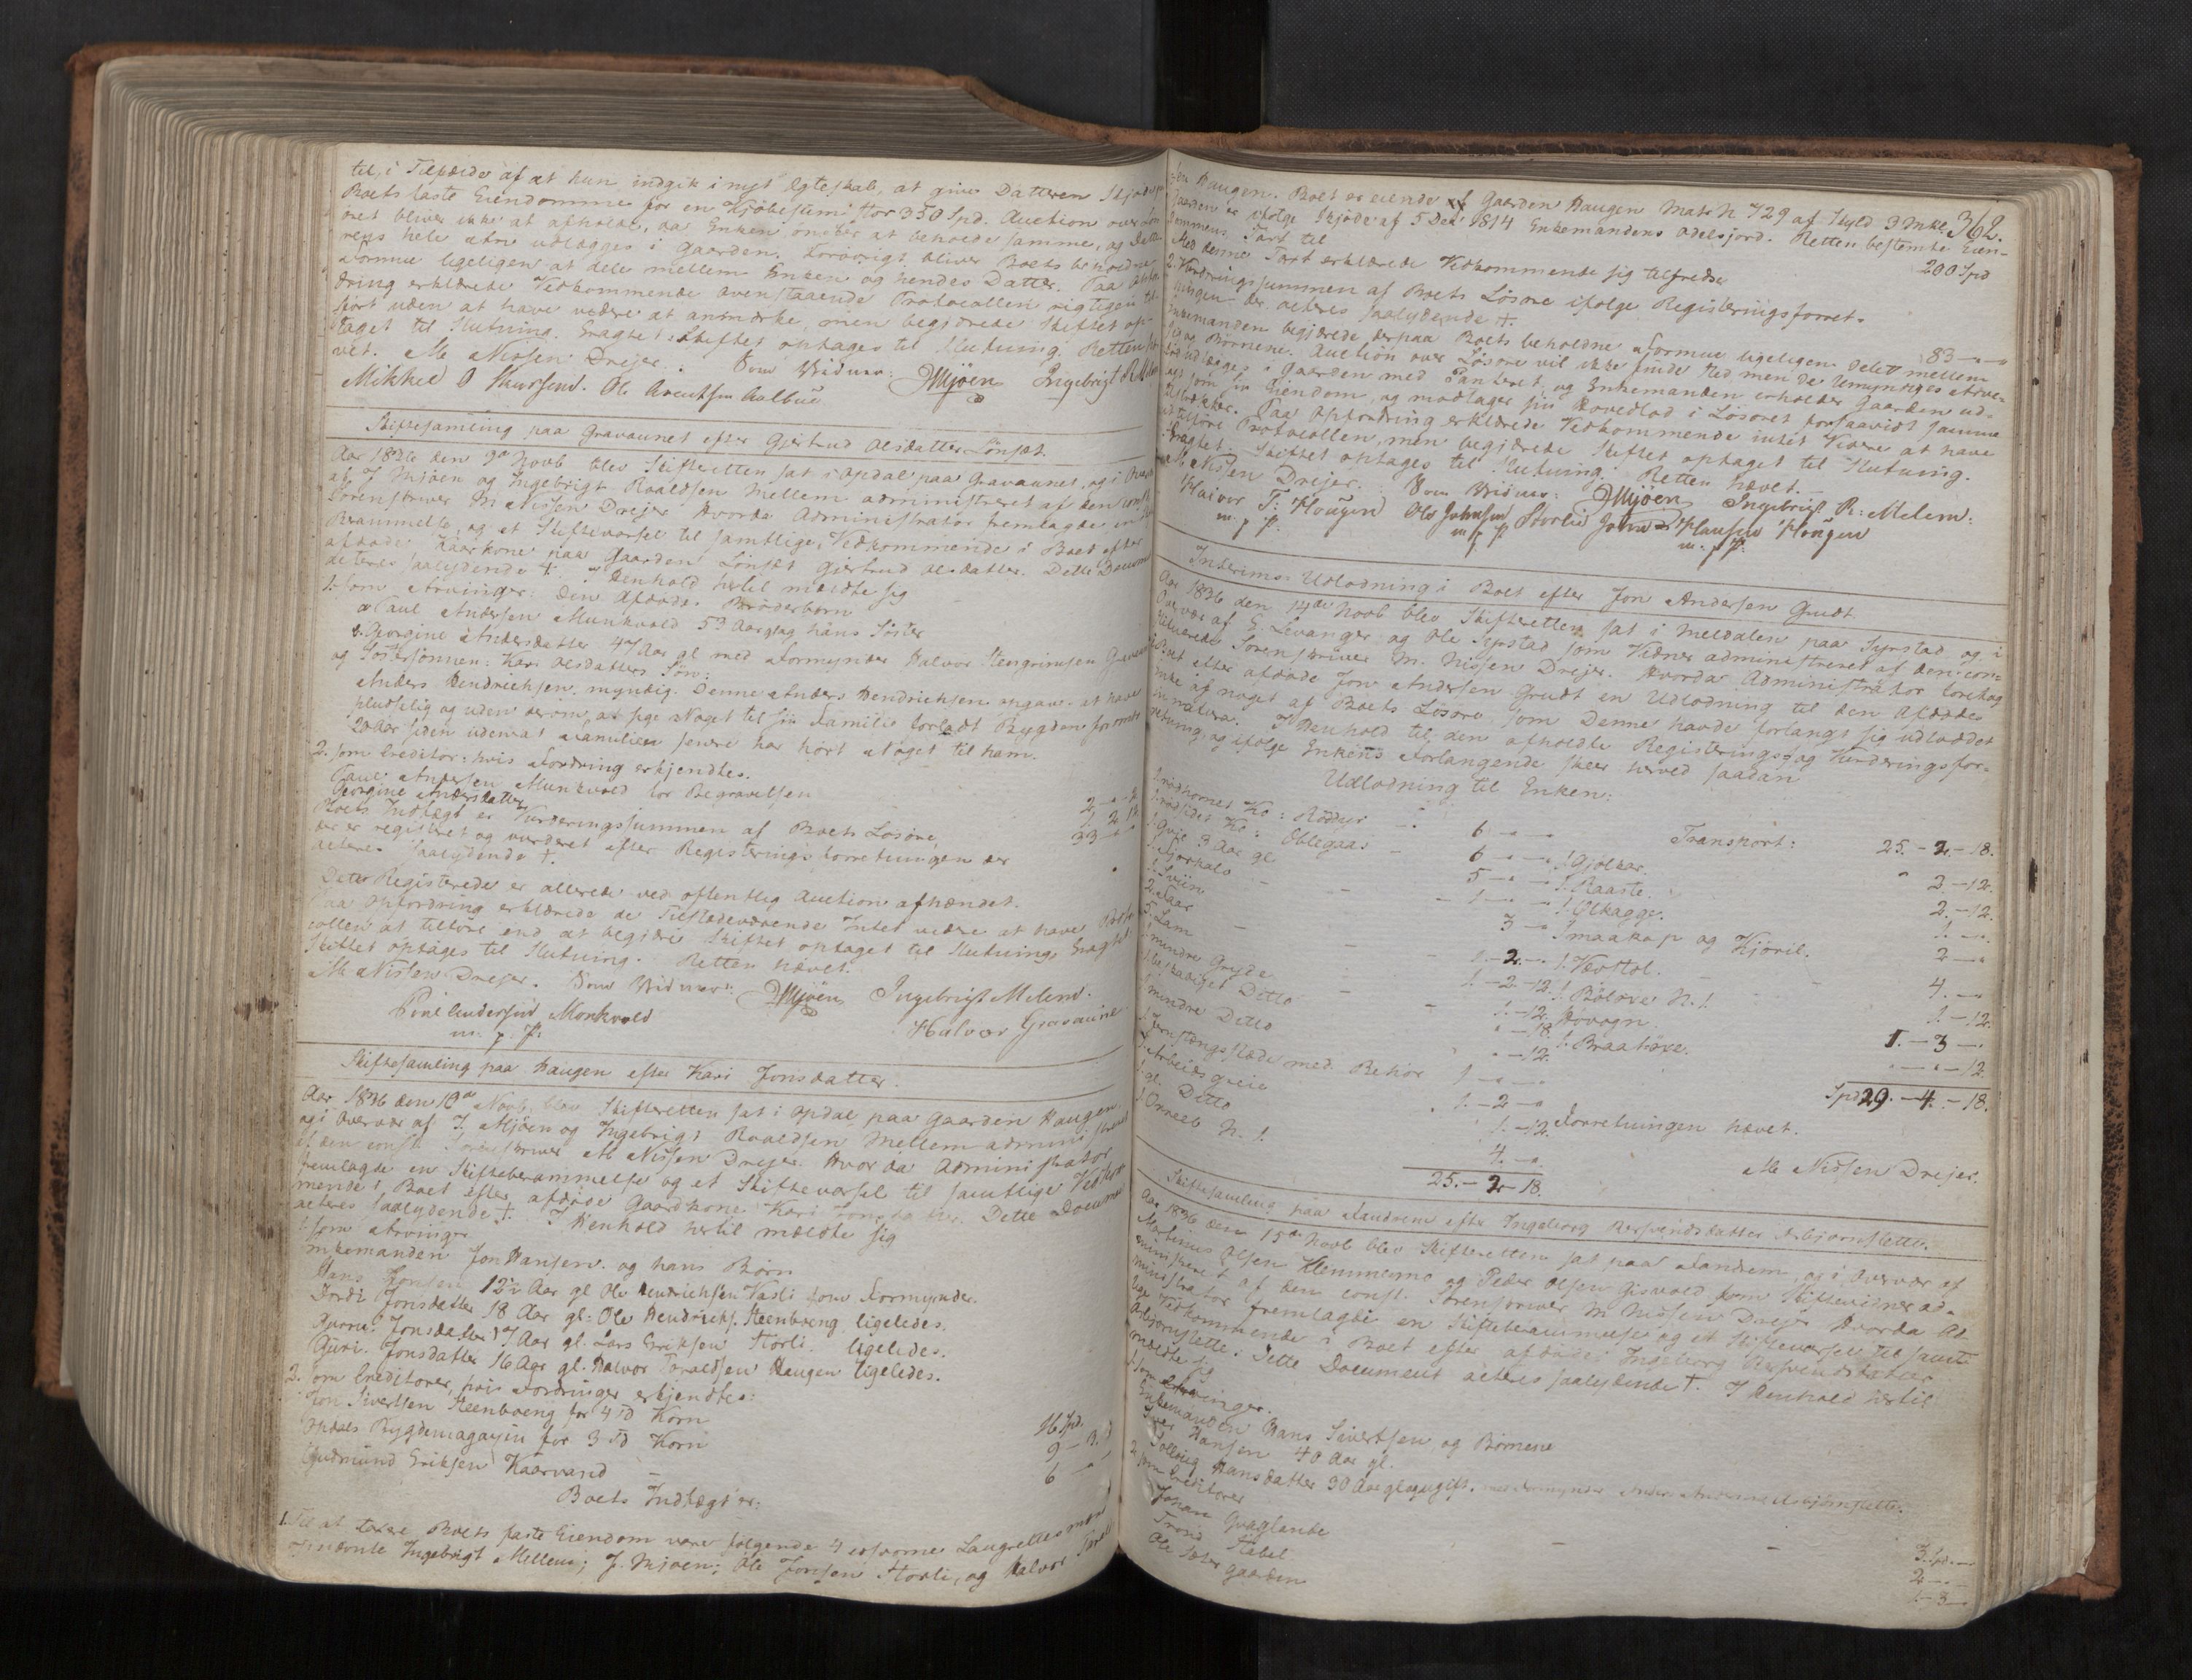 til, i Tilfælde af at hun indgik i nyt Egteskab, at give Datteren Skjøde paa
Boets faste Eiendomme for en Kjøbesum stor 350 Spd. Auction over Løs
øret bliver ikke at afholde, da Enken ønsker at beholde samme, og Datte
rens hele Arv udlægges i Gaarden. Forøvrigt bliver Boets beholdne
Formue ligeligen at dele mellem Enken og hendes Datter. Paa Opfor
dring erklærede Vedkommende ovenstaaende Protocollen rigtigen til
ført uden at have videre at anmærke, men begjærede Skiftet op
taget til Slutning. Eragtet: Skiftet optages til Slutning. Retten hæ
vet. M Nissen Drejer. Som Vidner: JMjøen Ingebrigt R Mellem
Mikkel O Ole Arentsen Aalbue
Skiftesamling paa Gravaunet efter Gjertrud Olsdatter Lønset.
Aar 1836 den 9de Novb blev Skifteretten sat i Opdal paa Gravaunet, og i Overvær
af J Mjøen og Ingebrigt Roaldsen Mellem administreret af den const.
Sorenskriver M Nissen Drejer. Hvorda Administrator fremlagde en Skifte
Berammelse, og et Skiftevarsel til samtlige Vedkommende i Boet efter
afdøde Kaarkone paa Gaarden Lønset Gjertrud Olsdatter. Dette Document
acteres saalydende †. I Henhold hertil meldte sig
1. som Arvinger: den Afdødes Brøderbørn
a Paul Andersen Munkvold 53 Aar og hans Søster
b. Georgine Andersdatter 47 Aar gl med Formynder Halvor Steengrimsen Gravaun
og Søstersønnen: Kari Olsdatters Søn:
Anders Hendrichsen, myndig. Denne Anders Hendrichsen opgav at have
pludselig og uden derom at sige Noget til sin Familie forladt Bygden for omtr
20 Aar siden uden at Familien senere har hørt Noget til ham.
2. som Creditor: hvis Fordring erkjendtes.
Paul Andersen Munkvold for Begravelsen
Georgine Andersdatter
Boets Indtægt er Vurderingssummen af Boets Løsøre,
der er registreret og vurderet efter Registeringsforretningen der
acteres saalydende †.
Dette Registerede er allerede ved offentlig Auction afhændet.
Paa Opfordring erklærede de Tilstedeværende Intet videre at have Proto
collen at tilføre end at begjære Skiftet optaget til Slutning. Eragtet:
Skiftet optages til Slutning. Retten hævet.
M Nissen Drejer. Som Vidner: JMjøen Ingebrigt Melem.
Poul Andersen Monkvold Halvor Gravaune
m. f. P.
Skiftesamling paa Haugen efter Kari Jonsdatter.
Aar 1836 den 10de Novb. blev Skifteretten sat i Opdal paa Gaarden Haugen
og i Overvær af J. Mjøen og Ingebrigt Roaldsen Mellem administreret
af den const Sorenskriver M Nissen Drejer. Hvorda Administrator
fremlagde en Skifteberammelse og et Skiftevarsel til samtlige Vedkom
mende i Boet efter afdøde Gaardkone Kari Jonsdatter. Dette Document
acteres saalydende †. I Henhold hertil meldte sig
1. som Arvinger
Enkemanden Jon Hansen og hans Børn
Hans Jonsen 12½ Aar gl Ole Hendrichsen Vasli som Formynder.
Jordi Jonsdatter 18 Aar gl: Ole Hendrichs. Steenboeng ligeledes.
Jonsdatter 17 Aar gl. Lars Eriksen Storli ligeledes.
Guri Jonsdatter 16 Aar gl. Halvor Toraldsen Haugen ligeledes.
2. som Creditorer, hvis Fordringer erkjendtes:
Jon Sivertsen Steenboeng for 4 Td Korn 16 Spd.
Opdals Bygdemagazin for 3 Td Korn 9 – 3.
Gudmund Eriksen Kaarvand – 6 – " –
Boets Indtægt er:
1. Til at taxere Boets faste Eiendom vare følgende 4 eedsvorne Laugrettesmænd
Ingebrigt Mellem; J. Mjøen; Ole Jonsen Storli, og Halvor Toralds
362.
sen Haugen. Boet er eiende af Gaarden Haugen Matr N 729 af Skyld 3 Mkl.
Gaarden er ifølge Skjøde af 5 Dec 1814 Enkemandens Odelsjord. Retten bestemte Eien-
dommens Taxt til 200 Spd
Med denne Taxt erklærede Vedkommende sig tilfredse
2. Vurderingssummen af Boets Løsøre ifølge Registeringsforret-
ningen der acteres saalydende †. 83 – " – "
Enkemanden begjærede derpaa Boets beholdne Formue ligeligen delet mellem
sig og Børnene. Auction over Løsøre vil ikke finde Sted, men de Umyndiges Arve-
lod udlægges i Gaarden med Panteret, og Enkemanden erholder Gaarden ud-
lagt som sin Eiendom, og modtager sin Hovedlod i Løsøret forsaavidt samme
tilstrækker. Paa Opfordring erklærede Vedkommende intet Videre at have
at tilføre Protocollen, men begjærede Skiftet optaget til Slutning.
Eragtet: Skiftet optages til Slutning. Retten hævet.
M Nissen Drejer. Som Vidner: JMjøen Ingebrigt R: Melem:
Halvor T: Hougen Ole Johnsen Storlie John Hansen Hougen
m. f. P. m f P m. f P.
Interims Udlodning i Boet efter Jon Andersen Grudt.
Aar 1836 den 14de Novb blev Skifteretten sat i Meldalen paa Syrstad og i
Overvær af E. Levanger og Ole Syrstad som Vidner administreret af den con-
stituerede Sorenskriver M. Nissen Drejer. Hvorda Administrator foretog
i Boet efter afdøde Jon Andersen Grudt en Udlodning til den Afdødes
Enke af noget af Boets Løsøre, som Denne havde forlangt sig udloddet
in natura. I Henhold til den afholdte Registerings og Vurderingsfor-
retning, og ifølge Enkens Forlangende skeer herved saadan
Udlodning til Enken:
1. rødhornet Ko: Roddur – 6 – " – "
1. rødsidet Ko: Oblegaas – 6 – " – "
1. Qvie 3 Aar gl – 5 – " – "
1. Sjørkalv – 1 – " – "
1. Sviin – 3 – "
2. Faar – 1 – 2 – "
5. Lam – 1. – 2 – 12.
1. mindre Gryde – 1. – 12.
1. beskadiget Ditto " – 18.
1. mindre Ditto " – 12.
1. Jernstængslæde med Behør 1 – " – "
1. Arbeidsgreie 1. – 2 – "
1. gl. Ditto 1. – 12.
1. Orneeb N. 1. 4. – "
25. – 2 – 18.
Transport: 25. – 2. – 18.
1. Gjølkar. " 3 – 12.
1. Raaste. 2. – 12.
1. Ølkagge. 1. – "
Smaakop og Kjøril. 2 – "
1. Vævstol. 4. – "
1. Boløxe N. 1. 1. – 12.
Høvogn. 1. – 3 – "
1. Braatøxe. " – " – 12
Spd 29. – 4. – 18.
Forretningen hævet.
M Nissen Drejer.
Skiftesamling paa Fandrem efter Ingeborg Aesvendsdatter Asbjørnslette.
Aar 1836 den 15de Novb blev Skifteretten sat paa Fandrem, og i Overvær af
Martinus Olsen Klemmemo og Peder Olsen Gisvold som Skiftevidner ad-
ministreret af den const. Sorenskriver M Nissen Drejer. Hvorda Ad-
ministrator fremlagde en Skifteberammelse og et Skiftevarsel til samt-
lige Vedkommende i Boet efter afdøde Ingeborg Aesvendsdatter
Asbjørnslette. Dette Document acteres saalydende †. I Henhold hertil
meldte sig
1. som Arvinger.
Enkemanden Hans Sivertsen, og Børnene
Iver Hansen 40 Aar gl.
Solveig Hansdatter 30 Aar gl og ugift. med Formynder Anders Asbjørnslette.
2. som Creditorer
Johan Qvaglante 3. Spd. –
Trond Stabel – – 2 – " –
Ole Sætergaarden 1 – 3 –